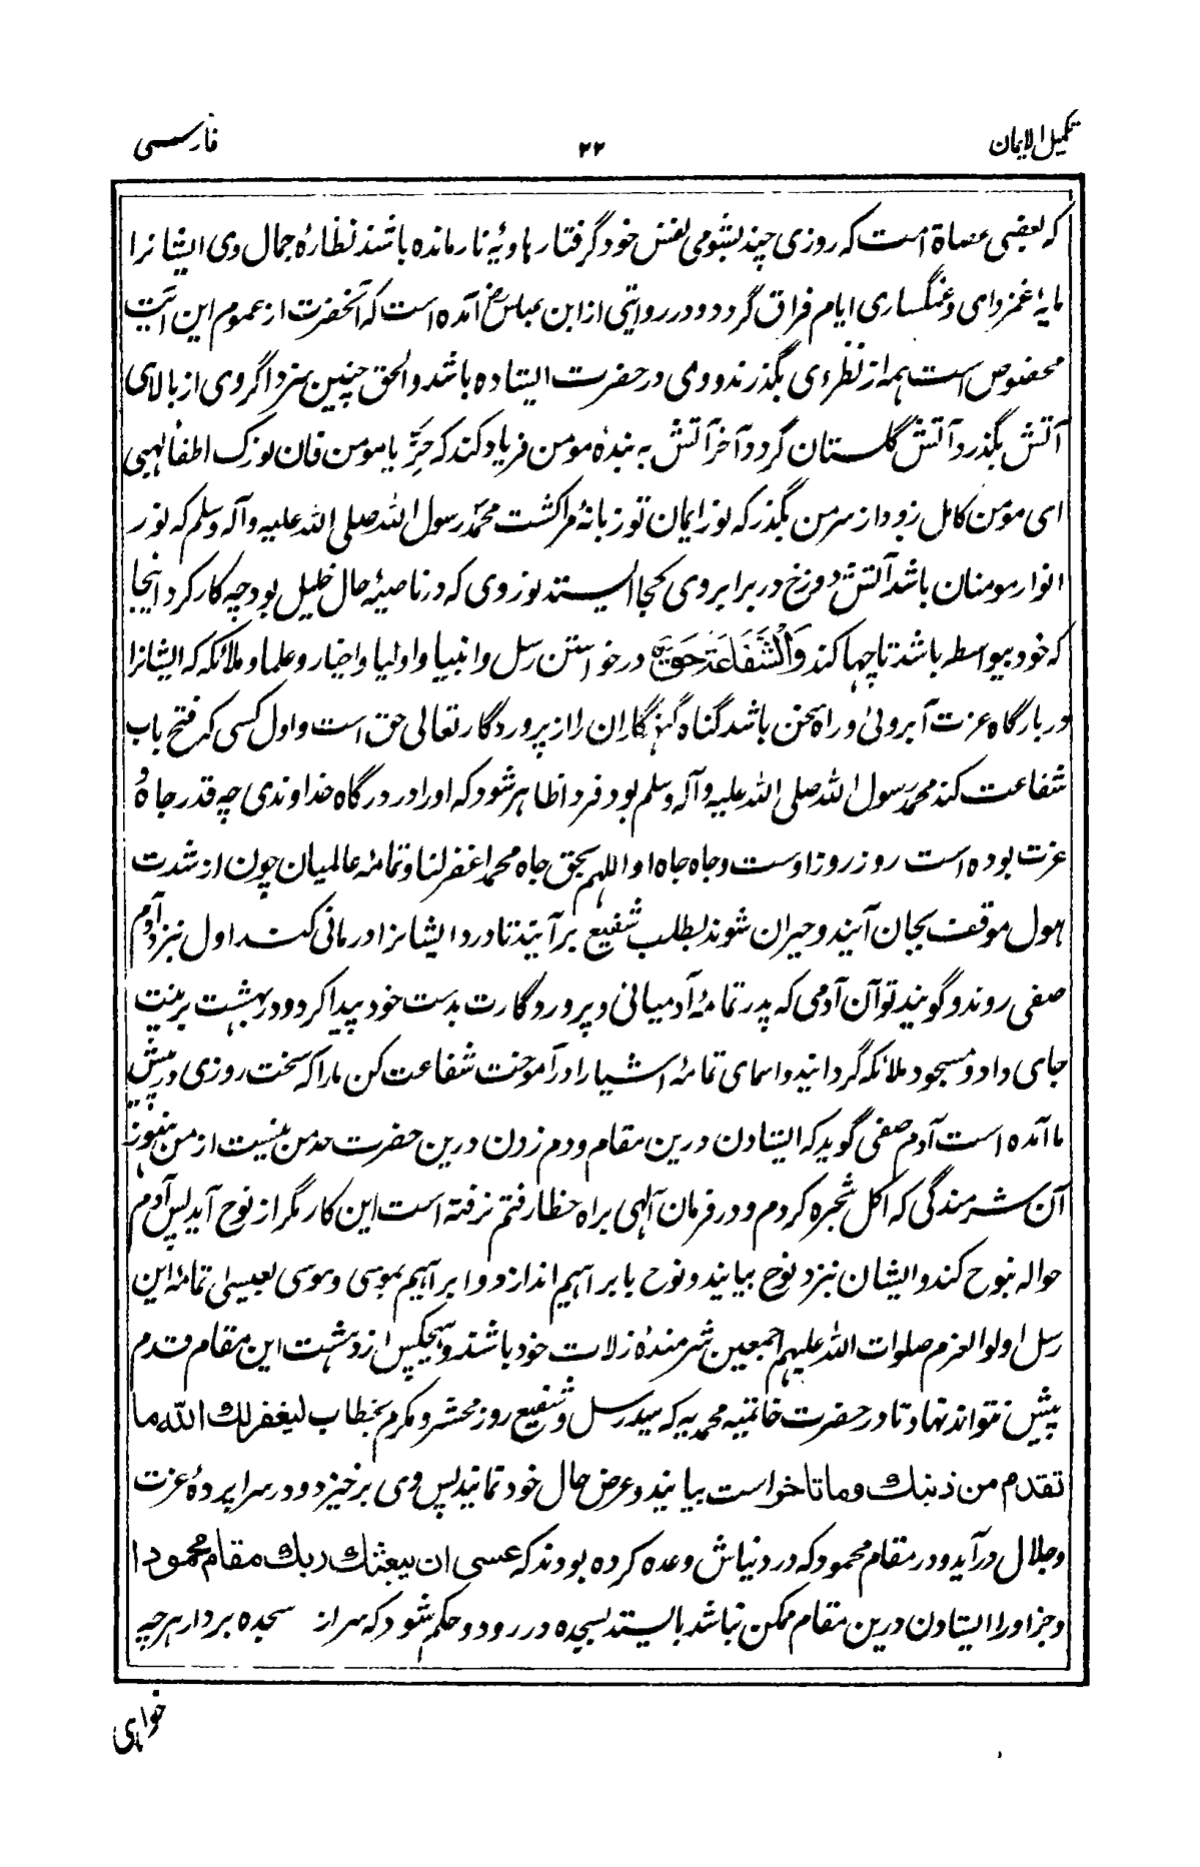 تکمیل الایمان ۲۲ فارسی
که بعضی عصاة است که روزی چند بشومی نفس خود گرفتار هاویهٔ نار مانده باشند نظارهٔ جمال وی ایشانرا
مایهٔ غمزدای و غمگساری ایام فراق گردد و در روایتی از ابن عباس رض آمده است که آنحضرت از عموم این آیت
مخصوص است همه از نظر وی بگذرند و وی در حضرت ایستاده باشد والحق چنین سزد اگر وی از بالای
آتش بگذرد آتش گلستان گردد آخر آتش به بندهٔ مومن فریاد کند که جز یا مومن فان نورک اطفأ لهبی
ای مؤمن کامل زود از سر من بگذر که نور ایمان تو زبانهٔ مرا کشت محمد رسول الله صلی الله علیه وآله وسلم که نور
انوار مومنان باشد آتش دوزخ در برابر وی کجا ایستد نور وی که در ناصیهٔ حال خلیل بود چه کار کرد اینجا
که خود بیواسطه باشد تا چها کند وَالشَّفَاعَةُ حَقٌّ در خواستن رسل و انبیا و اولیا و اخیار و علما و ملائکه که ایشانرا
در بارگاه عزت آبروئی و راه سخن باشد گناه گنهگاران را از پروردگار تعالی حق است و اول کسی که فتح باب
شفاعت کند محمد رسول الله صلی الله علیه وآله وسلم بود فردا ظاهر شود که او را در درگاه خداوندی چه قدر جاه و
عزت بوده است روز روز اوست و جاه جاه او اللهم بحق جاه محمد اغفر لنا و تمامهٔ عالمیان چون از شدت
هول موقف بجان آیند و حیران شوند بطلب شفیع برآیند تا درد ایشانرا درمانی کند اول نزد آدم
صفی روند و گویند تو آن آدمی که پدر تمامهٔ آدمیانی و پروردگارت بدست خود پیدا کرد و در بهشت برینت
جای داد و مسجود ملائکه گردانید و اسمای تمامهٔ اشیا را در آموخت شفاعت کن ما را که سخت روزی در پیش
ما آمده است آدم صفی گوید که ایستادن درین مقام و دم زدن درین حضرت حد من نیست از من هنوز
آن شرمندگی که اکل شجره کردم و در فرمان آلهی براه خطا رفتم نرفته است این کار مگر از نوح آید پس آدم
حواله بنوح کند و ایشان نزد نوح بیایند و نوح بابراهیم اندازد و ابراهیم بموسی و موسی بعیسی تمامهٔ این
رسل اولوالعزم صلوات الله علیهم اجمعین شرمندهٔ زلات خود باشند و هیچکس از دهشت این مقام قدم
پیش نتواند نهاد تا در حضرت خاتمیه محمدیه که سید رسل و شفیع روز محشر و مکرم بخطاب لیغفرلک الله ما
تقدم من ذنبک وما تاخر است بیایند و عرض حال خود نمایند پس وی برخیزد و در سراپردهٔ عزت
و جلال در آید و در مقام محمود که در دنیاش وعده کرده بودند که عسی ان یبعثک ربک مقام محمودا
و جز او را ایستادن درین مقام ممکن نباشد بایستد بسجده در رود و حکم شود که سر از سجده بردار هر چه
خواهی